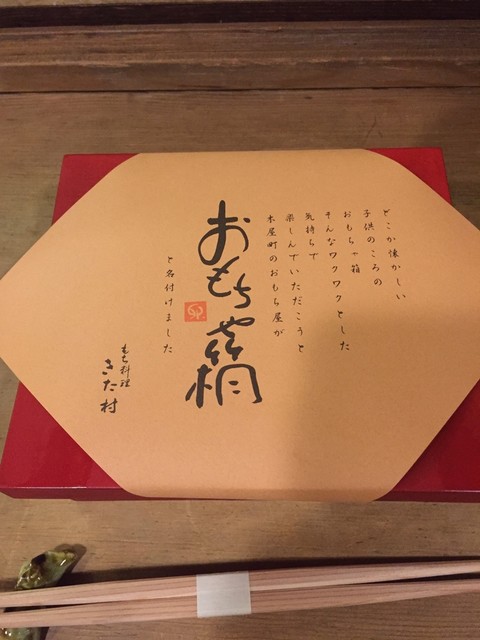 どこか懐かしい
子供のころの
おもちゃ箱
そんなワクワクとした
気持ちで
楽しんでいただこうと
木屋町のおもち屋が
おもちゃ箱
と名付けました
もち料理
きた村